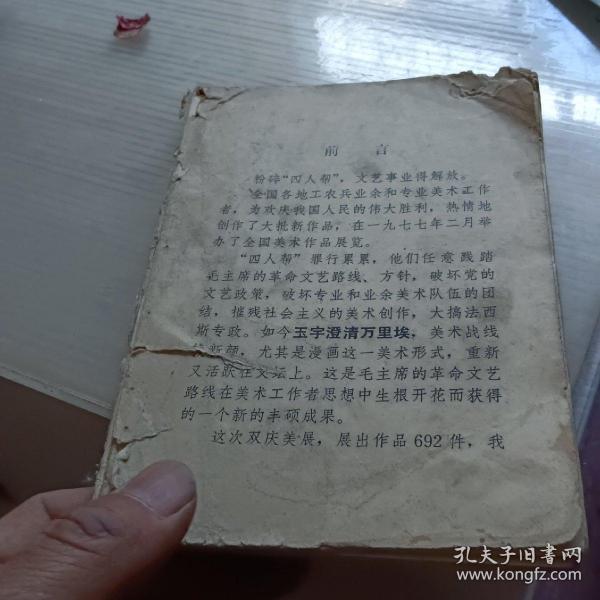 前言
粉碎“四人帮”，文艺事业得解放。
全国各地工农兵业余和专业美术工作
者，为欢庆我国人民的伟大胜利，热情地
创作了大批新作品，在一九七七年二月举
办了全国美术作品展览。
“四人帮”罪行累累，他们任意践踏
毛主席的革命文艺路线、方针，破坏党的
文艺政策，破坏专业和业余美术队伍的团
结，摧残社会主义的美术创作，大搞法西
斯专政。如今玉宇澄清万里埃，美术战线
新颜，尤其是漫画这一美术形式，重新
又活跃在文坛上。这是毛主席的革命文艺
路线在美术工作者思想中生根开花而获得
的一个新的丰硕成果。
这次双庆美展，展出作品692件，我
孔夫子旧书网
www.kongfz.com